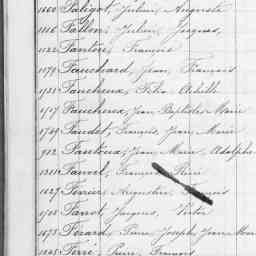 1660 Faligot, Julien Auguste
1116 Fallon, Julien Jacques,
1122 Fantou, Francis
1179 Fauchard, Jean François
1731 Faucheux, Achille
1757 Faucheux, Jean Baptiste Marie
1749 Faudet, François Jean Marie
1912 Fantoux, Jean Marie, Adolphe
Fauvel, François René
1127 Ferrier, Augustin Francis
1708 Farrot, Jacques, Victor
1473 Férard, Pierre Joseph Jean Marie
1665 Ferré, Pierre François